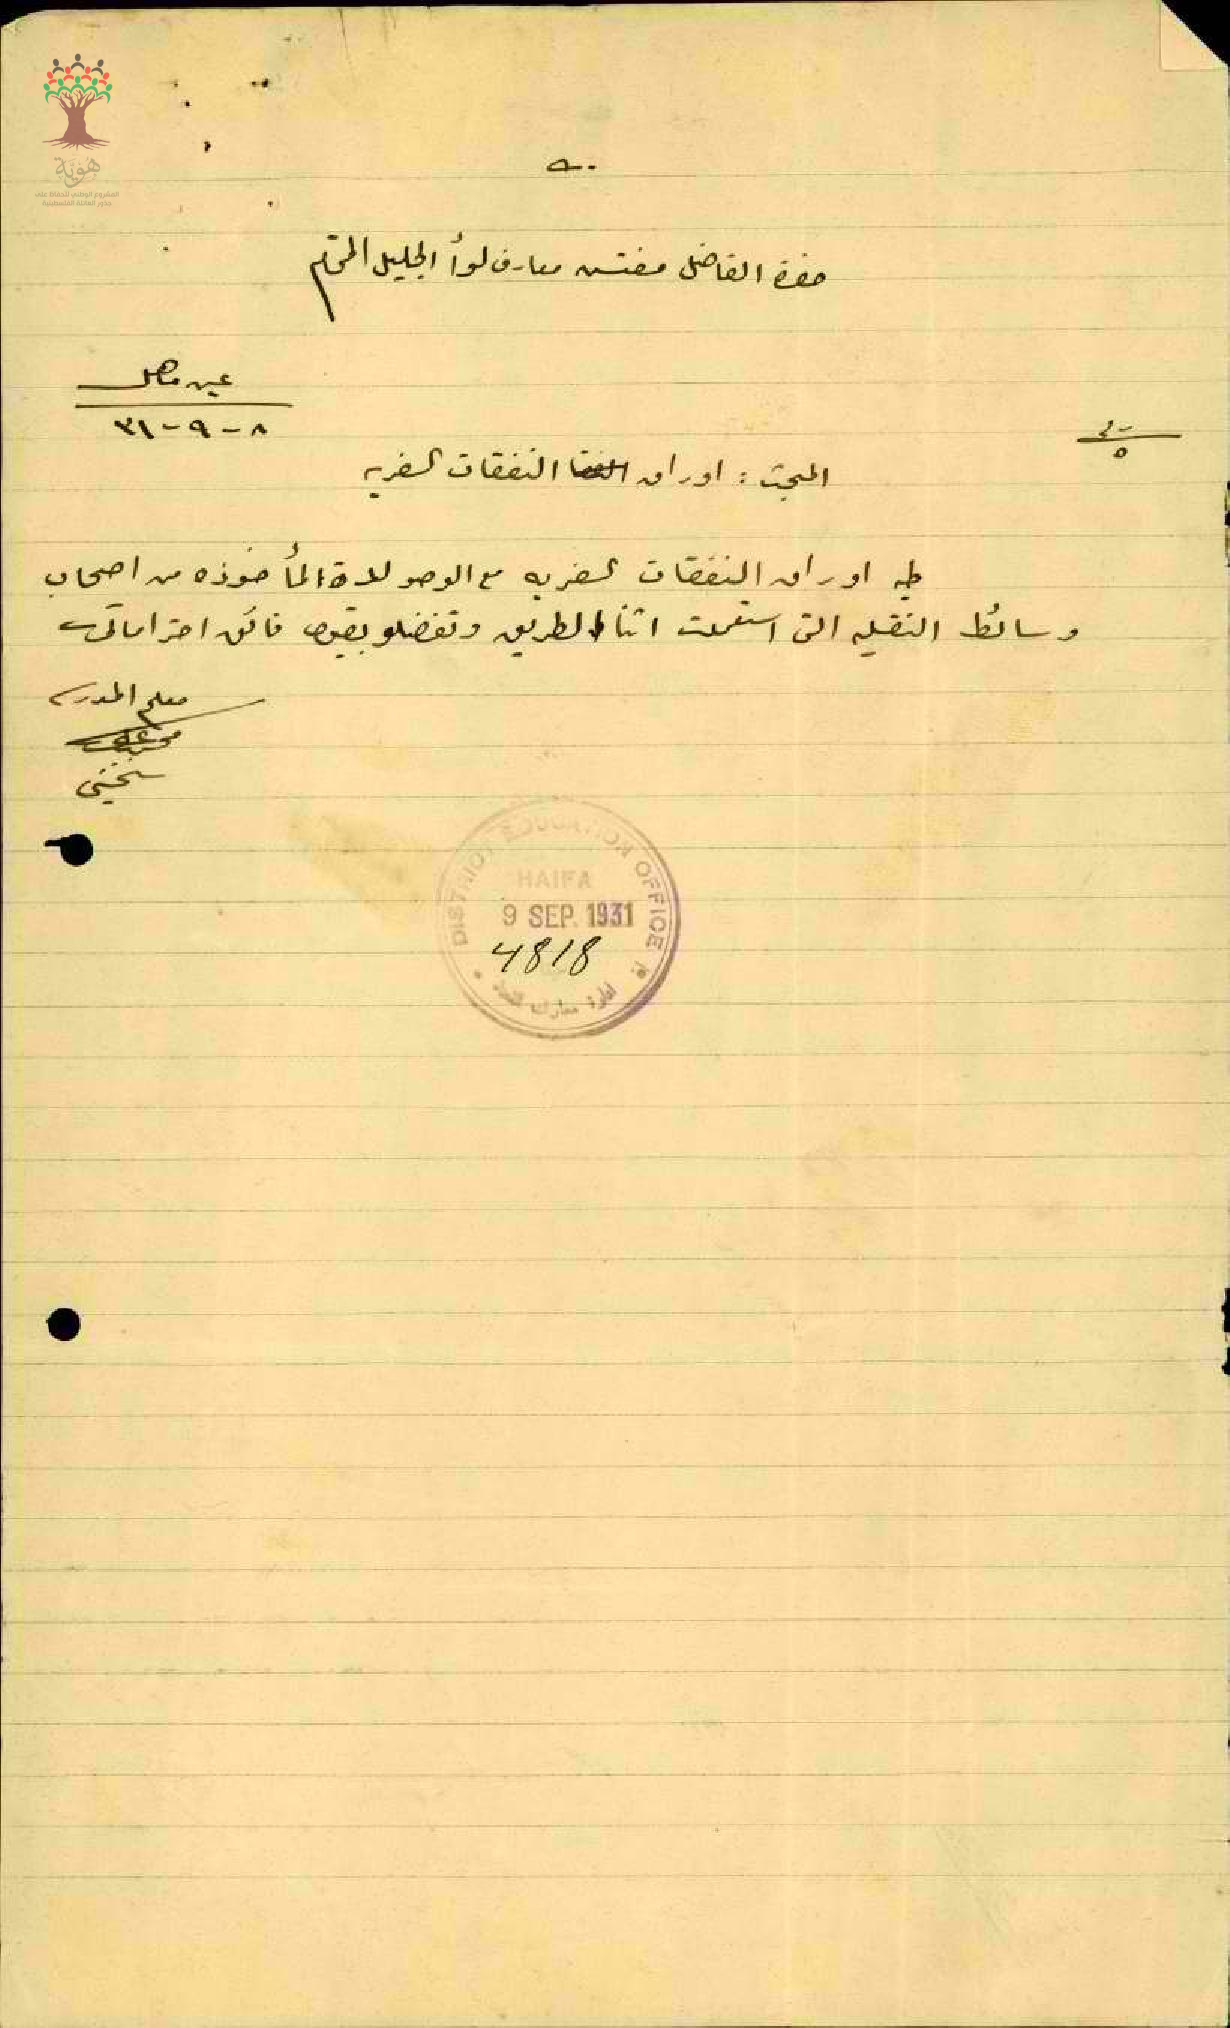 هوية
المشروع الوطني للحفاظ على
جذور العائلة الفلسطينية
حضرة الفاضل مفتش معارف لوأ الجليل المحترم
عين ماهل
٨ - ٩ - ٣١
٥
المبحث : اوراق النفقات السفريه
طيه اوراق النفقات السفريه مع الوصولات المأخوذه من اصحاب
وسائط النقليه التي استعملت اثنا الطريق وتفضلو بقبول فائق احتراماتي
معلم المدرسه
DISTRICT EDUCATION OFFICE
HAIFA
9 SEP. 1931
4818
ادارة معارف